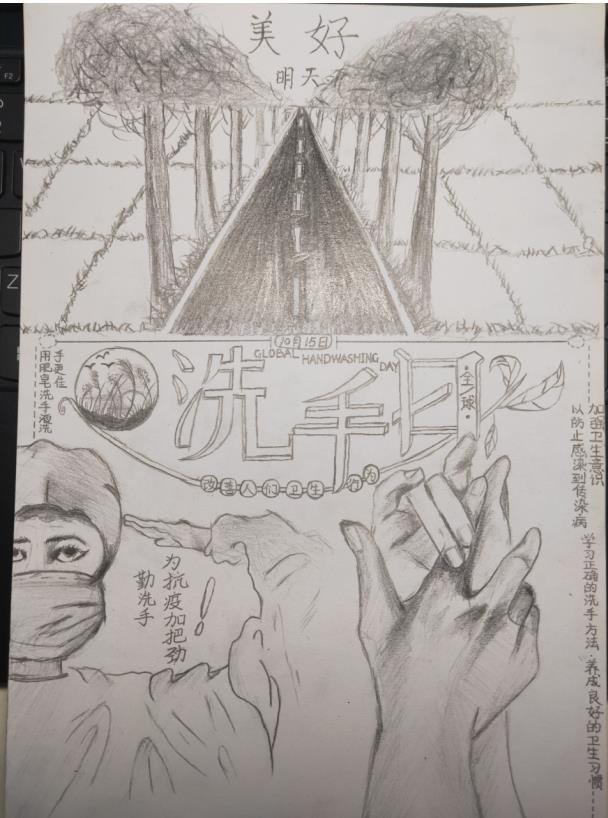 美好
明天
10月15日
GLOBAL HANDWASHING DAY
洗手日
·全球·
改善人们卫生行为
手更佳
用肥皂洗手漂洗
加强卫生意识
以防止感染到传染病
学习正确的洗手方法·养成良好的卫生习惯
为抗疫加把劲
勤洗手
!
F2
Z